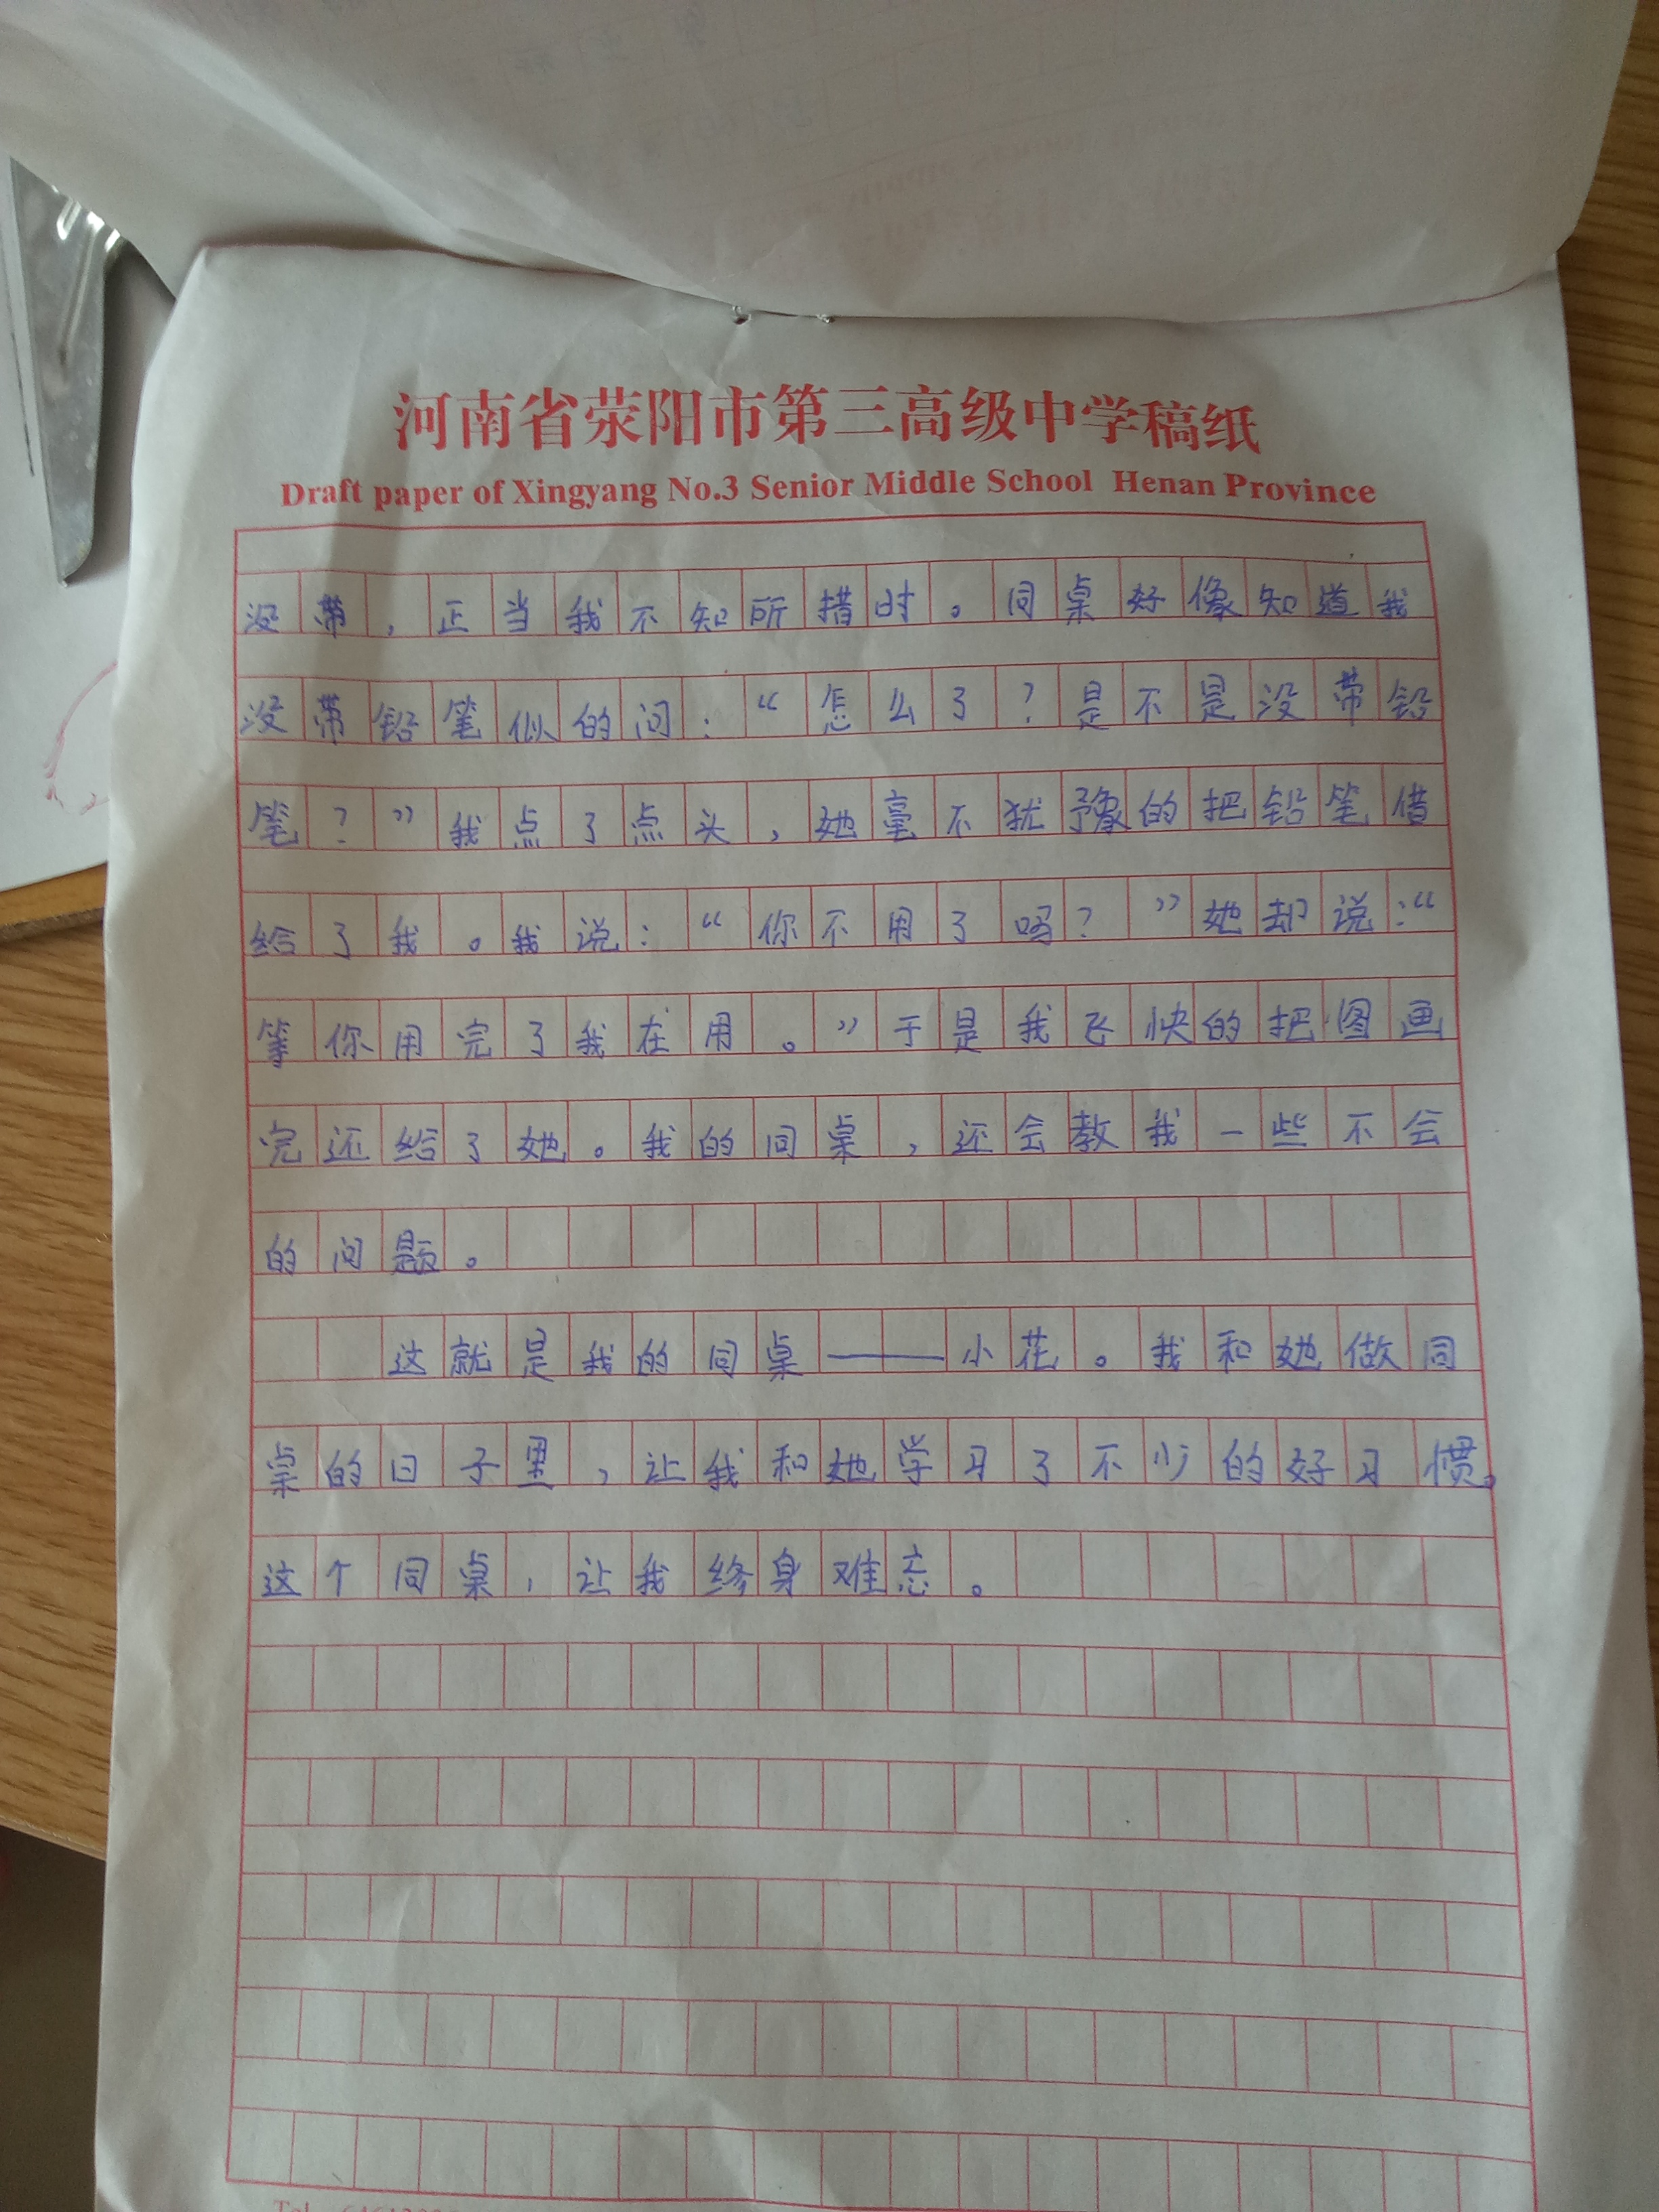 河南省荥阳市第三高级中学稿纸
Draft paper of Xingyang No.3 Senior Middle School Henan Province
没带，正当我不知所措时。同桌好像知道我
没带铅笔似的问：“怎么了？是不是没带铅
笔？”我点了点头，她毫不犹豫的把铅笔借
给了我。我说：“你不用了吗？”她却说：“
等你用完了我在用。”于是我飞快的把图画
完还给了她。我的同桌，还会教我一些不会
的问题。
这就是我的同桌——小花。我和她做同
桌的日子里，让我和她学习了不少的好习惯。
这个同桌，让我终身难忘。